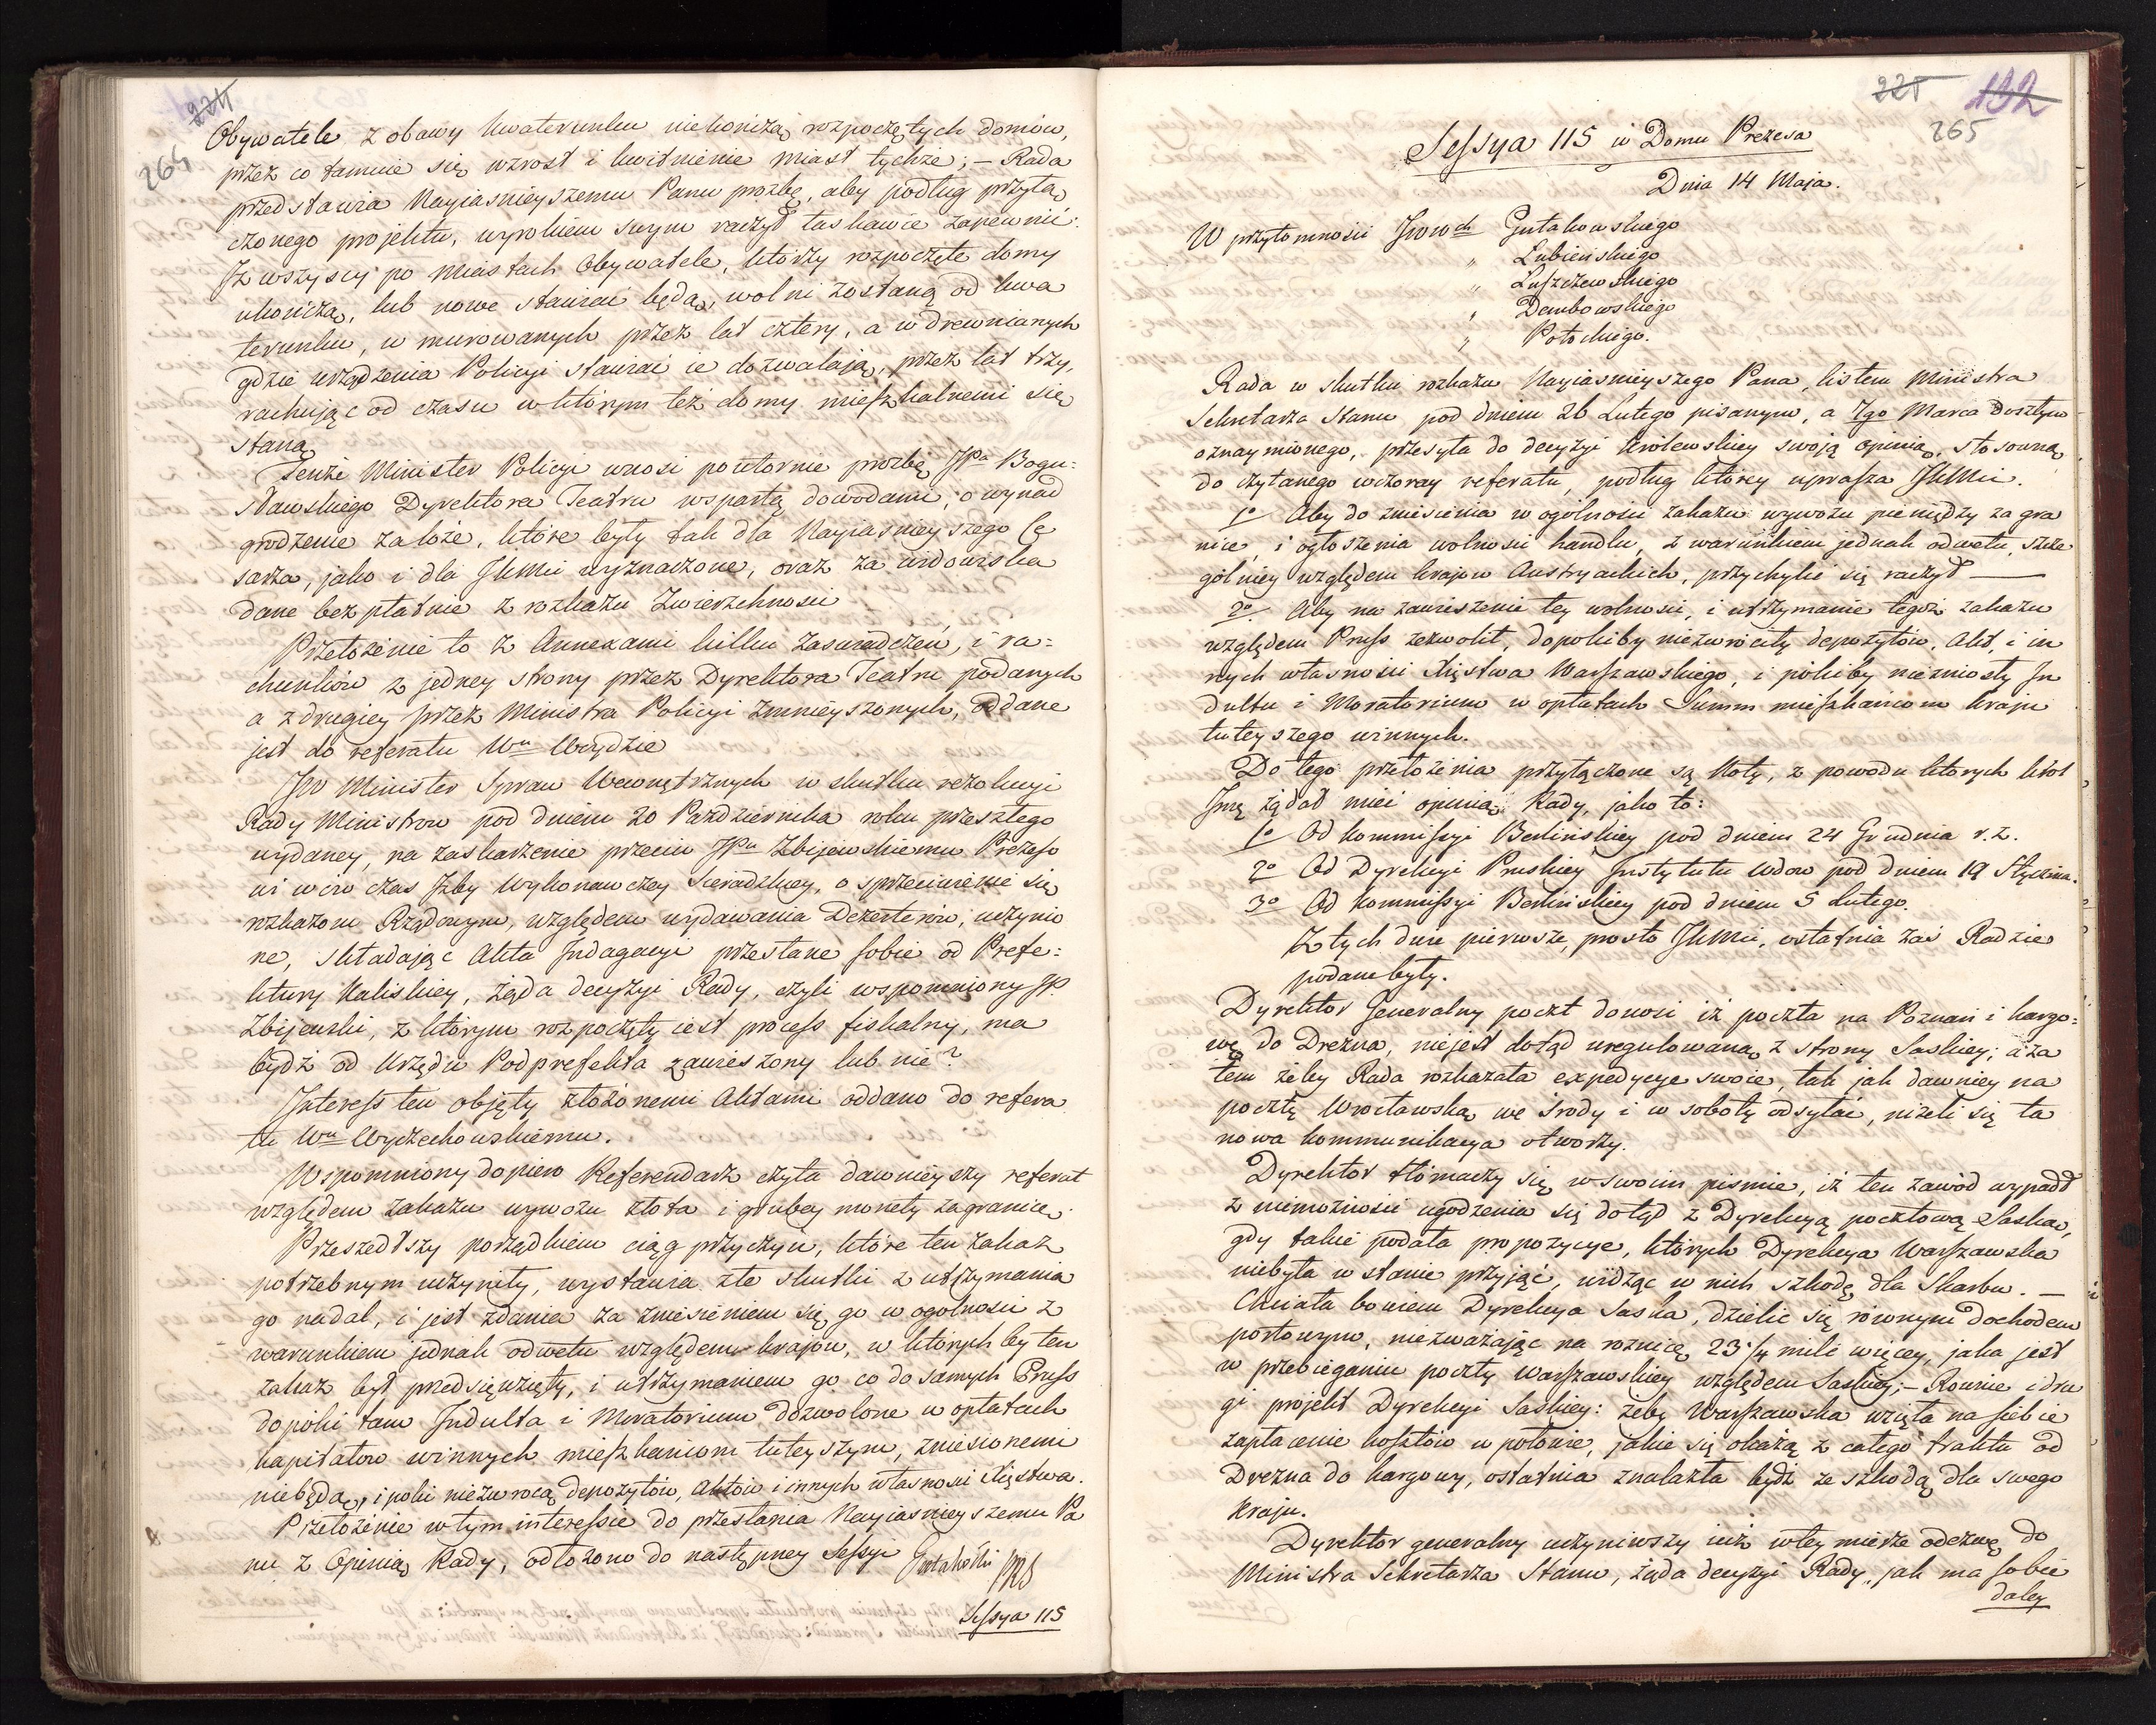 224
264
Obywatele z obawy kwaterunku niekończą rozpoczętych domów,
przez co tamuie się wzrost i kwitnienie miast tychże; – Rada
przedstawia Nayiasnieyszemu Panu prozbę, aby podług przyłą
czonego projektu, wyrokiem swym raczył łaskawie zapewnić:
Iż wszyscy po miastach Obywatele, którzy rozpoczęte domy
ukończą, lub nowe stawiać będą, wolni zostaną od kwa
terunku, w murowanych przez lat cztery, a w drewnianych
gdzie urządzenia Policyi stawiać ie dozwalaią, przez lat trzy,
rachując od czasu w którym też domy mieszkalnemi się
staną
Tenże Minister Policyi wnosi powtornie prozbę JPa Bogu=
sławskiego Dyrektora Teatru wspartą dowodami, o wynad
grodzenie za loże, które były tak dla Nayiasnieyszego Ce
sarza, jako i dla JKMci wyznaczone, oraz za widowiska
dane bezpłatnie z rozkazu Zwierzchnosci
Przełożenie to z Annexami kilku Zaswiadczeń, i ra=
chunków z jedney strony przez Dyrektora Teatru podanych
a z drugiey przez Ministra Policyi zmnieyszonych, oddane
jest do referatu Wu Woydzie
JW Minister Spraw Wewnętrznych w skutku rezolucyi
Rady Ministrow pod dniem 20 Pazdziernika roku przeszłego
wydaney, na zaskarzenie przeciw JPu Zbijewskiemu Prezeso
wi wow czas Izby Wykonawczey Sieradzkiey, o sprzeciwienie się
rozkazom Rządowym, względem wydawania Dezerterów, uczynio
ne, składając Akta Indagacyi przesłane sobie od Prefe=
ktury Kaliskiey, żąda decyzyi Rady, czyli wspomniony JP.
Zbijewski, z którym rozpoczęty iest process fiskalny, ma
bydź od Urzędu Podprefekta zawieszony lub nie?
Interess ten objęty złożonemi Aktami oddano do refera
tu Wu Wyczechowskiemu.
Wspomniony dopiero Referendarz czyta dawnieyszy referat
względem zakazu wywozu złota i grubey monety zagranicę.
Przeszedłszy porządkiem ciąg przyczyn, które ten zakaz
potrzebnym uczyniły, wystawia złe skutki z utrzymania
go nadal, i jest zdania za zniesieniem się go w ogolnosci z
warunkiem jednak odwetu względem krajow, w których by ten
zakaz był przedsięwzięty, i utrzymaniem go co do samych Pruss
dopóki tam Indulta i Moratorium dozwolone w opłatach
kapitałow winnych mieszkańcom tuteyszym, zniesionemi
niebędą, i poki niezwrocą depozytów, Aktów i innych własnosci Xięstwa.
Przełożenie w tym interessie do przesłania Nayiasnieyszemu Pa
nu z Opinią Rady, odłożono do następney Sessyi Gutakowski PRS
Sessya 115
225 192
265
Sessya 115 w Domu Prezesa
Dnia 14 Maja.
W przytomnosci JWWch Gutakowskiego
" Łubieńskiego
" Łuszczewskiego
" Dembowskiego
" Potockiego.
Rada w skutku rozkazu Nayiasnieyszego Pana, listem Ministra
Sekretarza Stanu pod dniem 26 Lutego pisanym, a 7go Marca doszłym
oznaymionego, przesyła do decyzyi Krolewskiey swoją opinią, stosowną
do czytanego wczoray referatu, podług którey uprasza JKMci.
1o Aby do zniesienia w ogólnosci zakazu wywozu pieniędzy zagra
nicę, i ogłoszenia wolnosci handlu, z warunkiem jednak odwetu, szcze
gólniey względem krajow Austryackich, przychylić się raczył —
2o Aby na zawieszenie tey wolnosci, i utrzymanie tegoż zakazu
względem Pruss zezwolił, dopokiby niezwrocity depozytów, Akt, i in
nych własnosci Xięstwa Warszawskiego, i pókiby nieznisły In
dultu i Moratorium w opłatach Summ mieszkańcom kraju
tuteyszego winnych.
Do tego przełożenia przyłączone są Noty, z powodu ktorych Król
Jmę żądał mieć opinią Rady, jako to:
1o Od Kommissyi Berlińskiey pod dniem 24 Grudnia r. z.
2o Od Dyrekcyi Pruskiey Instytutu Wdow pod dniem 19 Stycznia.
3o Od Kommissyi Berlińskiey pod dniem 5 Lutego.
Z tych dwie pierwsze, prosto JKMci, ostatnia zaś Radzie
podane były.
Dyrektor Jeneralny poczt donosi iż poczta na Poznań i kargo=
wę do Drezna, niejest dotąd uregulowaną z strony Saskiey; a za
tem żeby Rada rozkazała expedycye swoie, tak jak dawniey na
pocztę Wrocławską we środy i w sobotę odsyłać, nizeli się ta
nowa kommunikacya otworzy.
Dyrektor tłómaczy się w swoim pismie, iż ten zawód wypadł
z niemożnosci ugodzenia się dotąd z Dyrekcyą pocztową Saską,
gdy takie podała propozycye, których Dyrekcya Warszawska
niebyła w stanie przyjąć, widząc w nich szkodę dla Skarbu. —
Chciała bowiem Dyrekcya Saska, dzielic się równym dochodem
portowym, niezważając na roznicę 23¼ mili więcey, jaka jest
w przebieganiu poczty Warszawskiey względem Saskiey; – Rownie i dru
gi projekt Dyrekcyi Saskiey: żeby Warszawska wzięła na siebie
zapłacenie kosztów w połowie, jakie się okażą z całego traktu od
Drezna do Kargowy, ostatnia znalazła bydź ze szkodą dla swego
Kraju.
Dyrektor generalny uczyniwszy iuż w tey mierze odezwę do
Ministra Sekretarza Stanu, żąda decyzyi Rady, jak ma sobie
daley